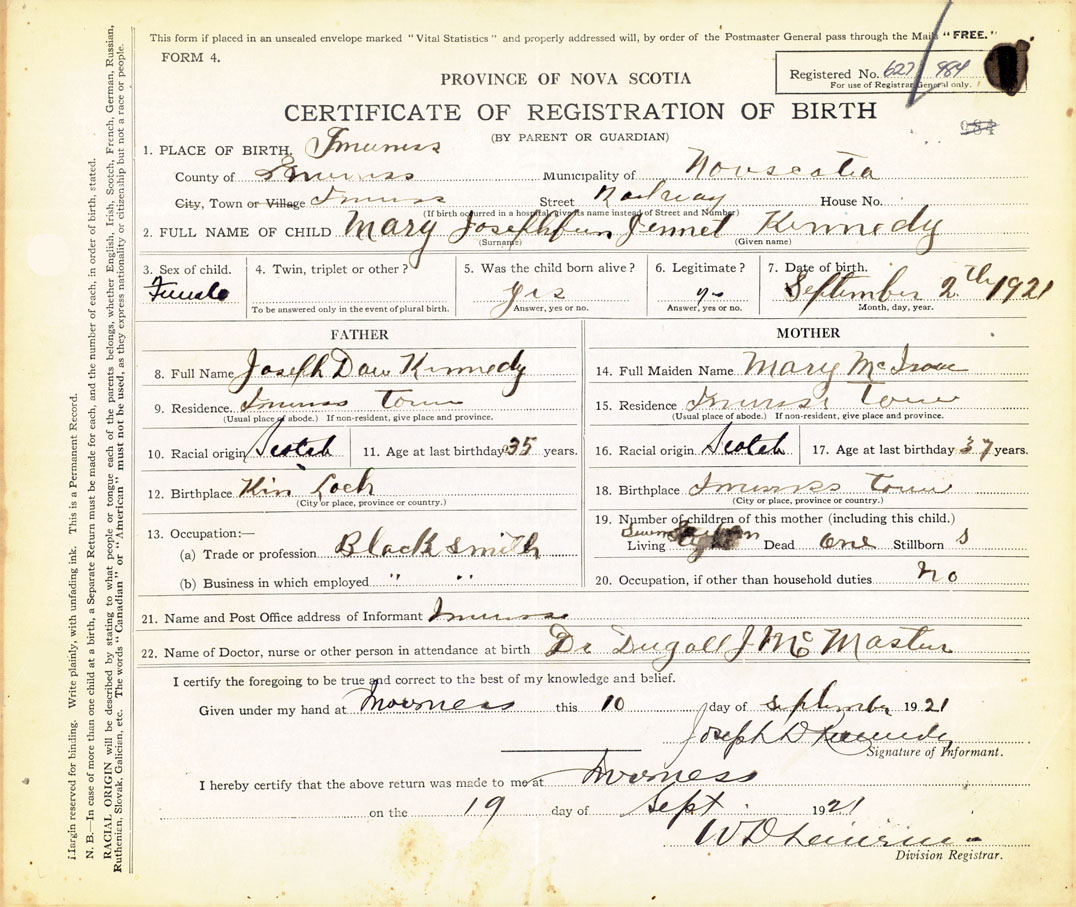 This form if placed in an unsealed envelope marked "Vital Statistics" and properly addressed will, by order of the Postmaster General pass through the Mails "FREE."
FORM 4.
Registered No. 627 984
For use of Registrar General only.
PROVINCE OF NOVA SCOTIA
CERTIFICATE OF REGISTRATION OF BIRTH
984
(BY PARENT OR GUARDIAN)
1. PLACE OF BIRTH.
County of Municipality of Novascotia
City, Town or Village Street Railway House No.
(If birth occurred in a hospital, give its name instead of Street and Number)
2. FULL NAME OF CHILD Mary Jennet Kennedy
(Surname) (Given name)
3. Sex of child. 4. Twin, triplet or other? 5. Was the child born alive? 6. Legitimate? 7. Date of birth.
Female yes September 2th 1921
To be answered only in the event of plural birth. Answer, yes or no. Answer, yes or no. Month, day, year.
FATHER
8. Full Name Joseph Dan Kennedy
9. Residence town
(Usual place of abode.) If non-resident, give place and province.
10. Racial origin Scotch 11. Age at last birthday 35 years.
12. Birthplace Kin Loch
(City or place, province or country.)
13. Occupation:—
(a) Trade or profession Black smith
(b) Business in which employed " "
MOTHER
14. Full Maiden Name Mary Mc Isaac
15. Residence town
(Usual place of abode.) If non-resident, give place and province.
16. Racial origin Scotch 17. Age at last birthday 37 years.
18. Birthplace town
(City or place, province or country.)
19. Number of children of this mother (including this child.)
Living Dead One Stillborn
20. Occupation, if other than household duties no
21. Name and Post Office address of Informant
22. Name of Doctor, nurse or other person in attendance at birth Dr Dugall J Mc Master
I certify the foregoing to be true and correct to the best of my knowledge and belief.
Given under my hand at Inverness this 10 day of september 1921
Joseph D Kennedy
Signature of Informant.
I hereby certify that the above return was made to me at Inverness
on the 19 day of Sept 1921
Division Registrar.
Margin reserved for binding. Write plainly, with unfading ink. This is a Permanent Record.
N. B.—In case of more than one child at a birth, a Separate Return must be made for each, and the number of each, in order of birth, stated.
RACIAL ORIGIN will be described by stating to what people or tongue each of the parents belongs, whether English, Irish, Scotch, French, German, Russian,
Ruthenian, Slovak, Galician, etc. The words "Canadian" or "American" must not be used, as they express nationality or citizenship but not a race or people.